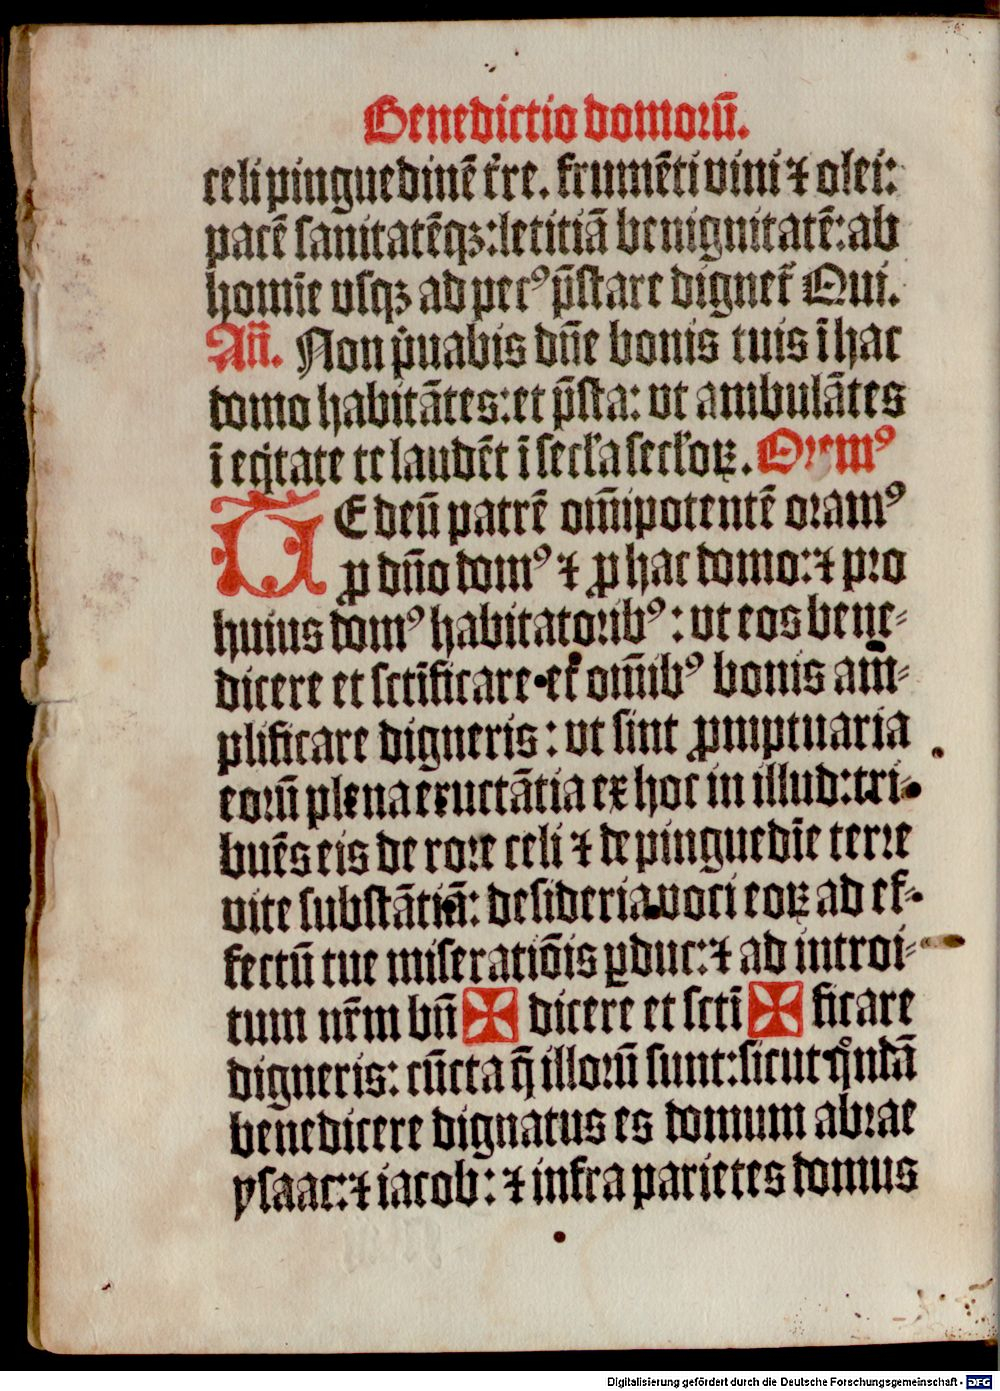 Benedictio domoꝝū.
celi pinguedinē tr̄re. frumēti vini ⁊ olei:
pacē sanitatēqꝫ: letitiā benignitatē: ab
homīe vsqꝫ ad pecꝰ p̄stare dignet̄ Qui.
Añ. Non p̄uabis dn̄e bonis tuis ī hac
domo habitātes: et p̄sta: vt ambulātes
ī eq̇tate te laudēt ī secl̓a secl̓oꝝ. Oremꝰ
TE deū patrē om̄ipotentē oramꝰ
ꝓ dn̄o domꝰ ⁊ ꝓ hac domo: ⁊ pro
huius domꝰ habitatoribꝰ: vt eos bene-
dicere et scti̅ficare. et̄ om̄ibꝰ bonis am-
plificare digneris: vt sint ꝓmptuaria
eorū plena eructātia ex hoc in illud: tri-
buēs eis de rore celi ⁊ de pinguedīe terre
vite substātiā: desideria voci eoꝝ ad ef-
fectū tue miseratiōis ꝑduc: ⁊ ad introi-
tum nr̄m bn̄ ✠ dicere et scti̅ ✠ ficare
digneris: cūcta q̄ illorū sunt: sicut qͦndā
benedicere dignatus es domum abrae
ysaac: ⁊ iacob: ⁊ infra parietes domus
Digitalisierung gefördert durch die Deutsche Forschungsgemeinschaft - DFG